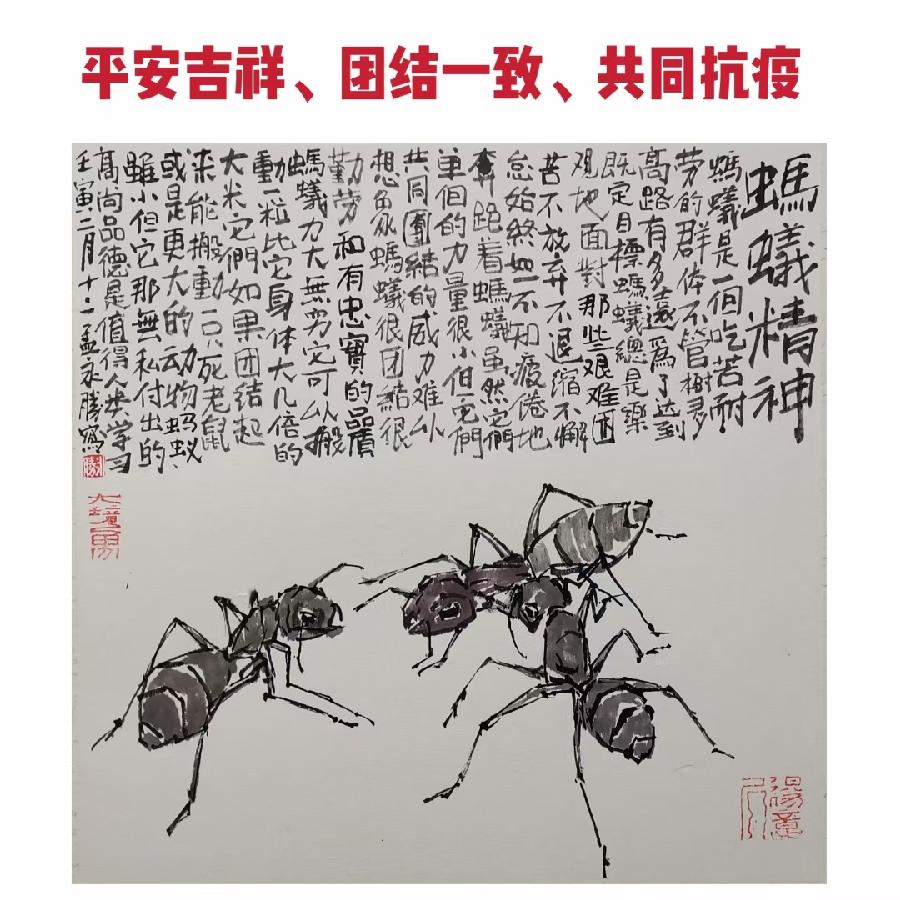 平安吉祥、团结一致、共同抗疫
螞蟻精神
螞蟻是一個吃苦耐
劳的群体不管樹多
高路有多遠為了达到
既定目標螞蟻總是樂
观地面對那些艰难困
苦不放弃不退缩不懈
怠始终如一不知疲倦地
奔跑着螞蟻虽然它們
单個的力量很小但它們
共同團結的威力难以
想象螞蟻很团結很
勤劳和有忠實的品質
螞蟻力大無穷它可以搬
動一粒比它身体大几倍的
大米它們如果团结起
来能搬動一只死老鼠
或是更大的动物蚂蚁
雖小但它那無私付出的
高尚品德是值得人类学习
壬寅二月十二孟永勝寫